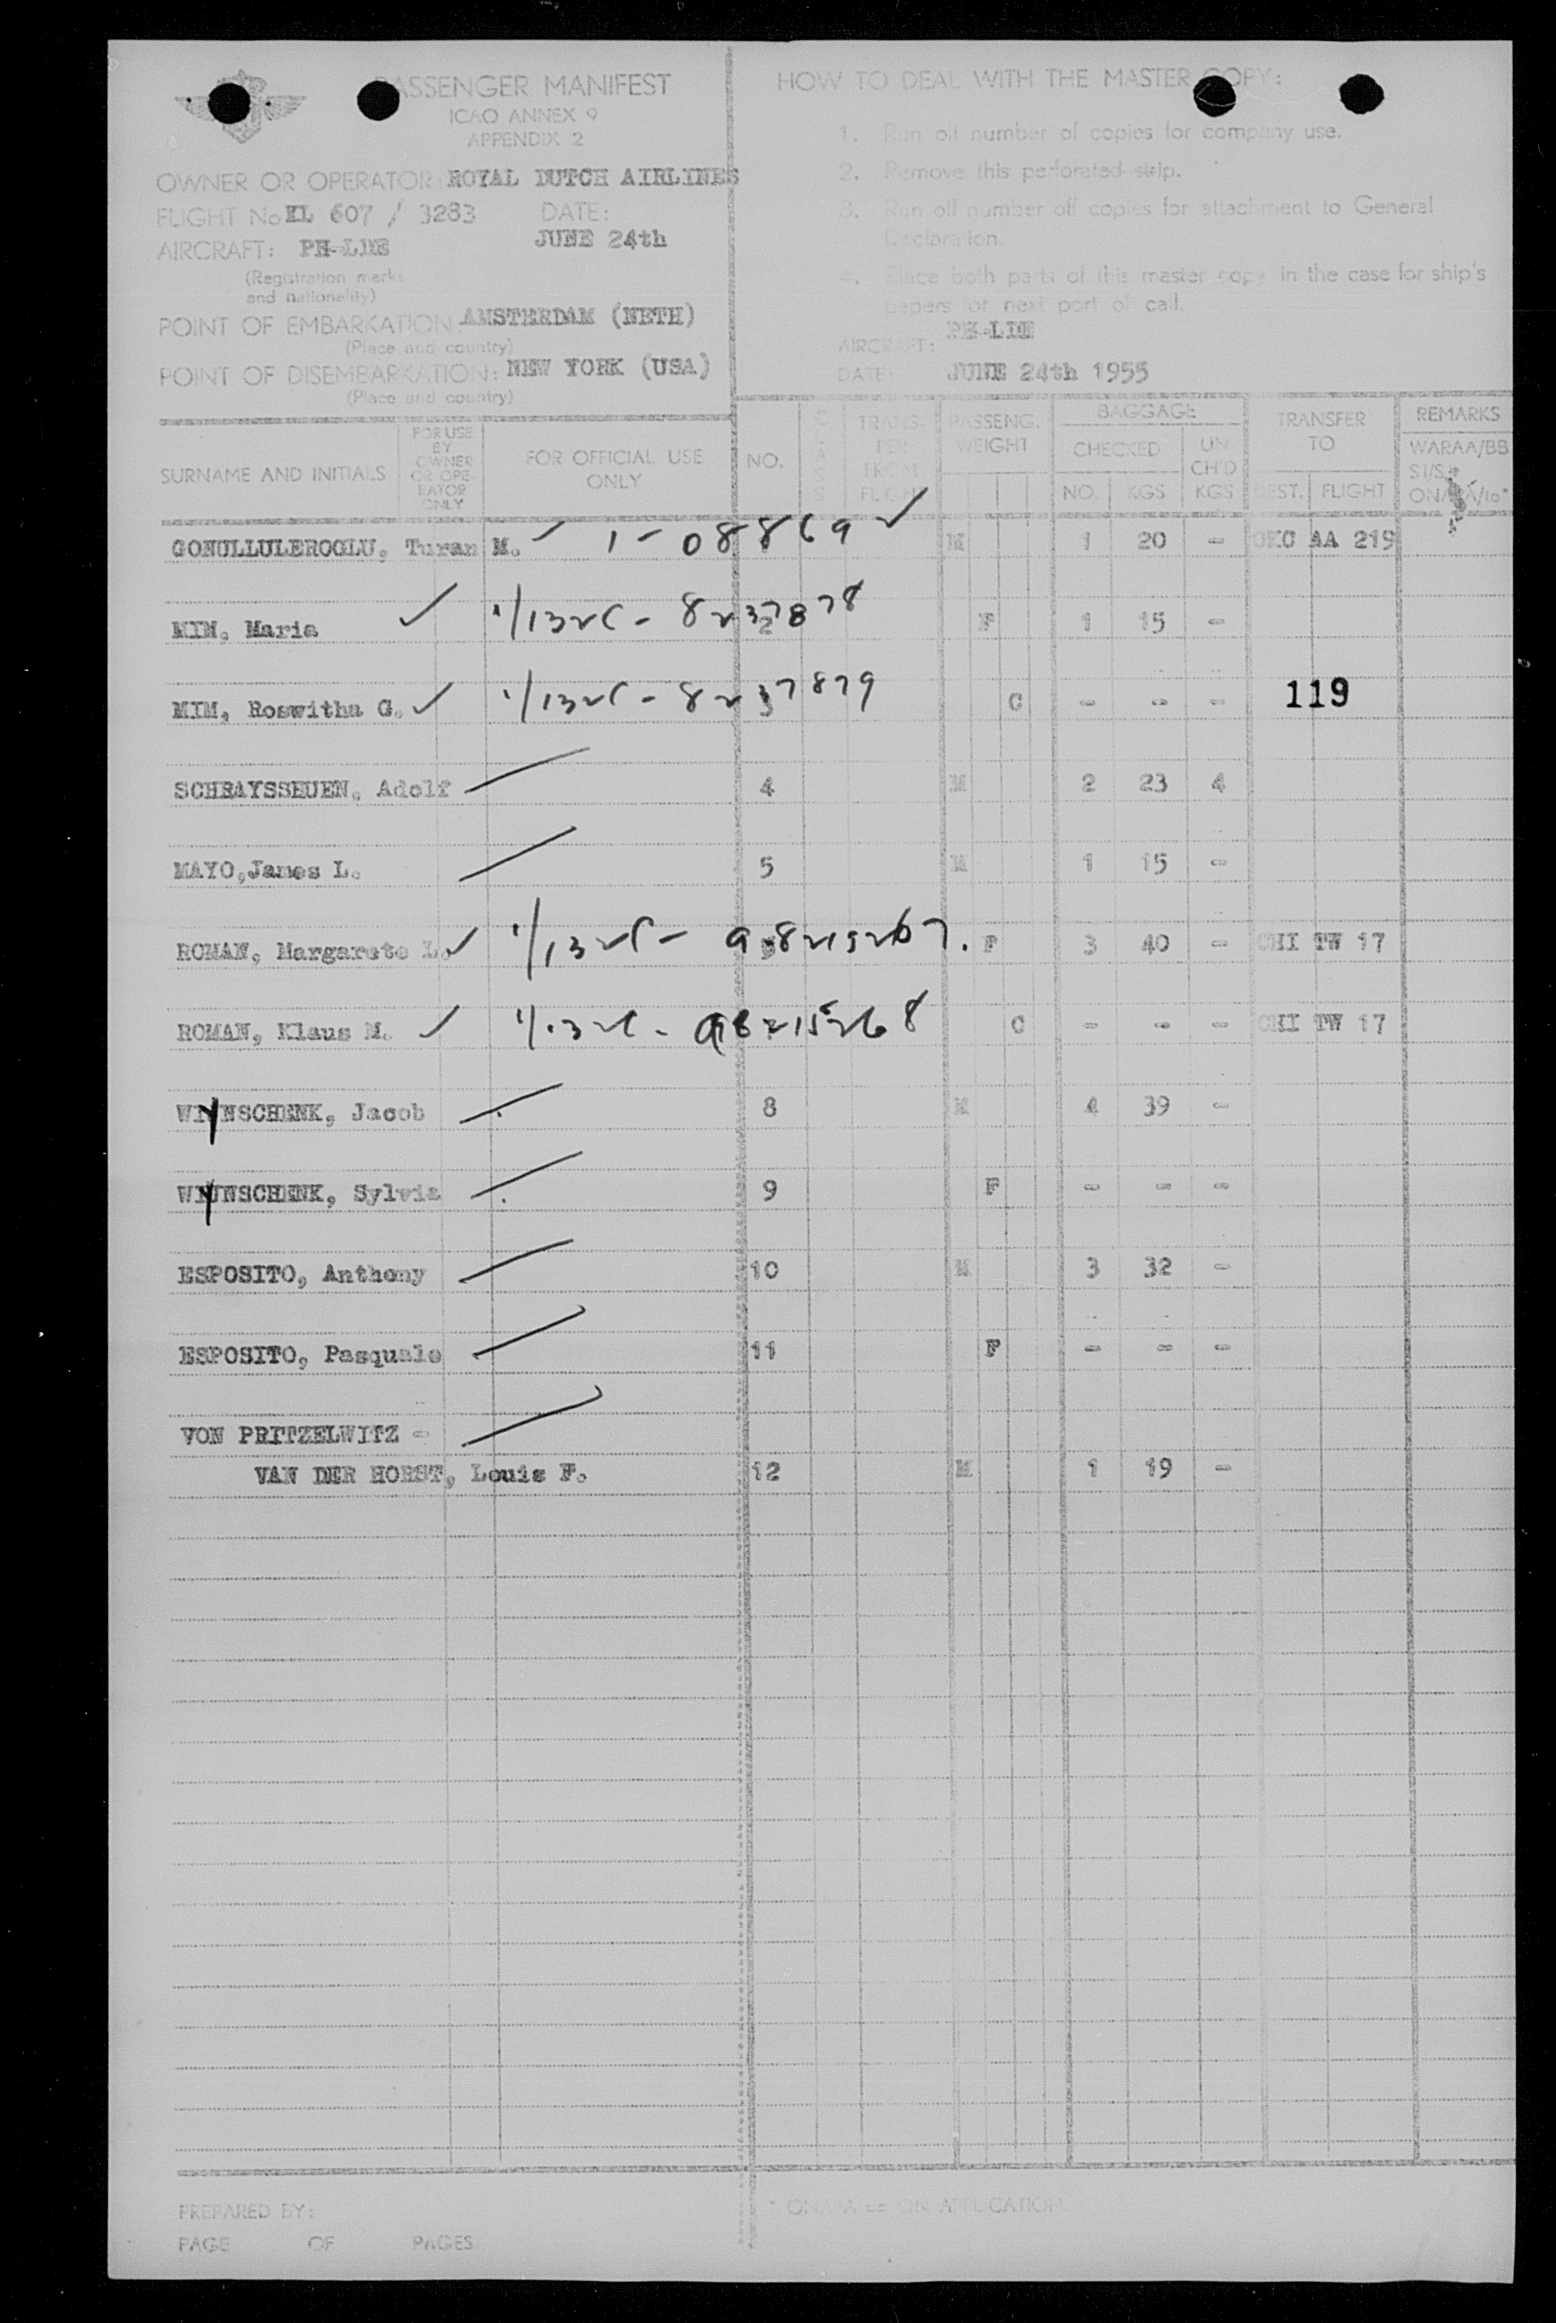 PASSENGER MANIFEST
ICAO ANNEX 9
APPENDIX 2
OWNER OR OPERATOR: ROYAL DUTCH AIRLINES
FLIGHT No KL 607 / 3283 DATE:
AIRCRAFT: PH-LDE JUNE 24th
(Registration marks
and nationality)
POINT OF EMBARKATION: AMSTERDAM (NETH)
(Place and country)
POINT OF DISEMBARKATION: NEW YORK (USA)
(Place and country)
HOW TO DEAL WITH THE MASTER COPY:
1. Run off number of copies for company use.
2. Remove this perforated strip.
3. Run off number off copies for attachment to General
Declaration.
4. Place both parts of this master copy in the case for ship's
papers for next port of call.
AIRCRAFT: PH-LDE
DATE: JUNE 24th 1955
SURNAME AND INITIALS FOR USE BY OWNER OR OPERATOR ONLY FOR OFFICIAL USE ONLY NO. CLASS TRANS- FER FROM FLIGHT PASSENG. WEIGHT BAGGAGE CHECKED NO. KGS UN CH'D KGS TRANSFER TO DEST. FLIGHT REMARKS WARAA/BB
GONULLULEROGLU, Turan M. 1-08869 M 1 20 - OKC AA 219
MIM, Maria 2 F 1 15 -
MIM, Roswitha G. 3 C - - - 119
SCHRAYSSHUEN, Adolf 4 M 2 23 4
MAYO, James L. 5 M 1 15 -
ROMAN, Margarete L. F 3 40 - CHI TW 17
ROMAN, Klaus M. C - - - CHI TW 17
WYNSCHENK, Jacob 8 M 4 39 -
WYNSCHENK, Sylvia 9 F - - -
ESPOSITO, Anthony 10 M 3 32 -
ESPOSITO, Pasquale 11 F - - -
VON PRITZELWITZ -
VAN DER HORST, Louis F. 12 M 1 19 -
PREPARED BY:
PAGE OF PAGES